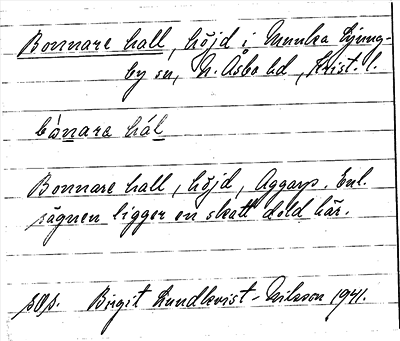 Bonnare hall, höjd i Munka Ljung-
by sn, N. Åsbo hd, Krist. l.
bònara hál
Bonnare hall, höjd, Aggarp. Enl.
sägnen ligger en skatt dold här.
Birgit Lundkvist-Nilsson 1941.